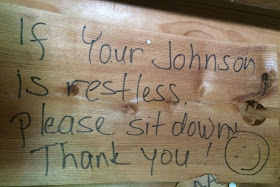 If Your Johnson
is restless.
Please sit down
Thank you!